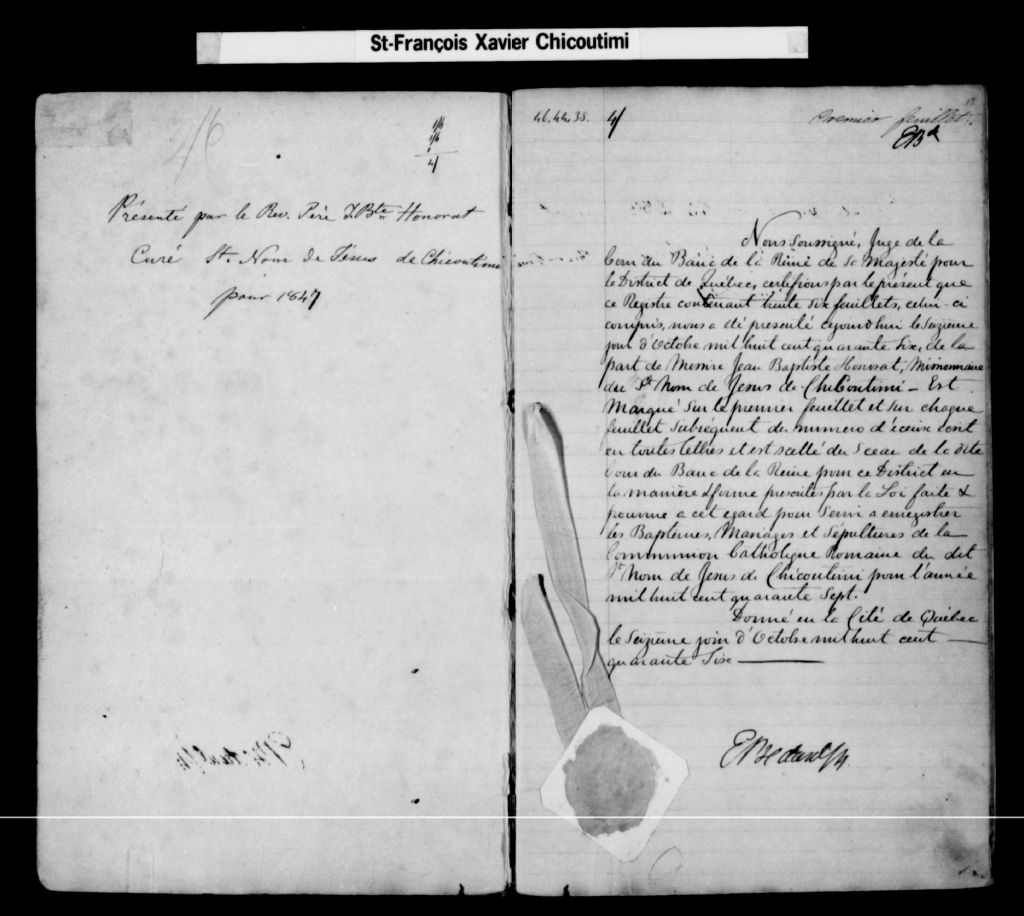 St-François Xavier Chicoutimi
4/6
1/6
1/6
4/
Présenté par le Rev. Père J. Bte Honorat
Curé St. Nom de Jésus de Chicoutimi
pour 1847
46.44.38. 4/ Premier feuillet.
EBd
Nous Soussigné, Juge de la
Cour du Banc de la Reine de Sa Majesté pour
le District de Québec, certifions par le présent que
ce Registre contenant trente Six feuillets, celui-ci
compris, nous a été présenté cejourdhui le Seizieme
jour d'Octobre mil huit cent quarante Six, de la
part de Messire Jean Baptiste Honorat, Missionnaire
du St Nom de Jesus de ChiCoutimi - Est
Marqué Sur le premier feuillet et sur chaque
feuillet Subséquent du numero d'iceux ecrit
en toutes lettres et est scellé du Sceau de la dite
Cour du Banc de la Reine pour ce District en
la maniere & forme prescrites par la Loi faite &
pourvue a cet egard pour Servir a enregistrer
les Baptemes, Mariages et Sépultures de la
Communion Catholique Romaine du dit
St Nom de Jesus de Chicoutimi pour l'année
mil huit cent quarante Sept.
Donné en la Cité de Québec
le Seizieme jour d'Octobre mil huit cent
quarante Six
E Bedard J